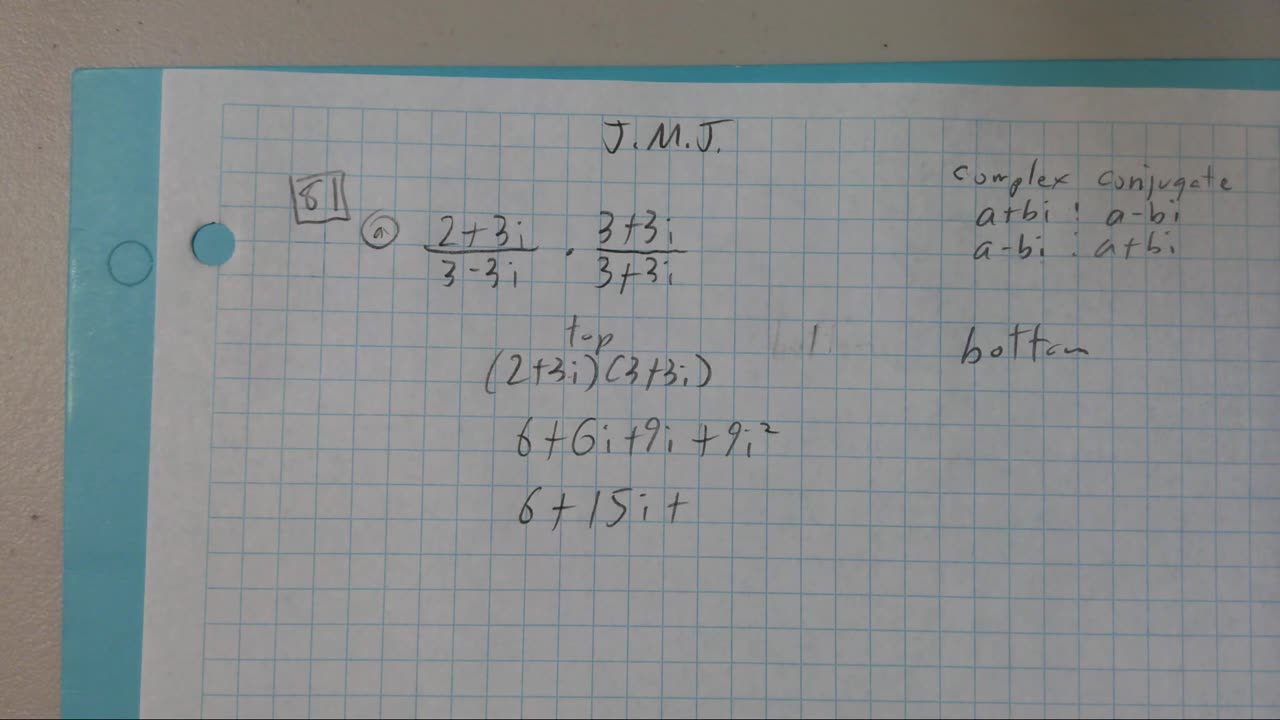 J.M.J.
81
a
2+3i / 3-3i · 3+3i / 3+3i
complex conjugate
a+bi : a-bi
a-bi : a+bi
top
(2+3i)(3+3i)
6+6i+9i+9i²
6+15i+
bottom